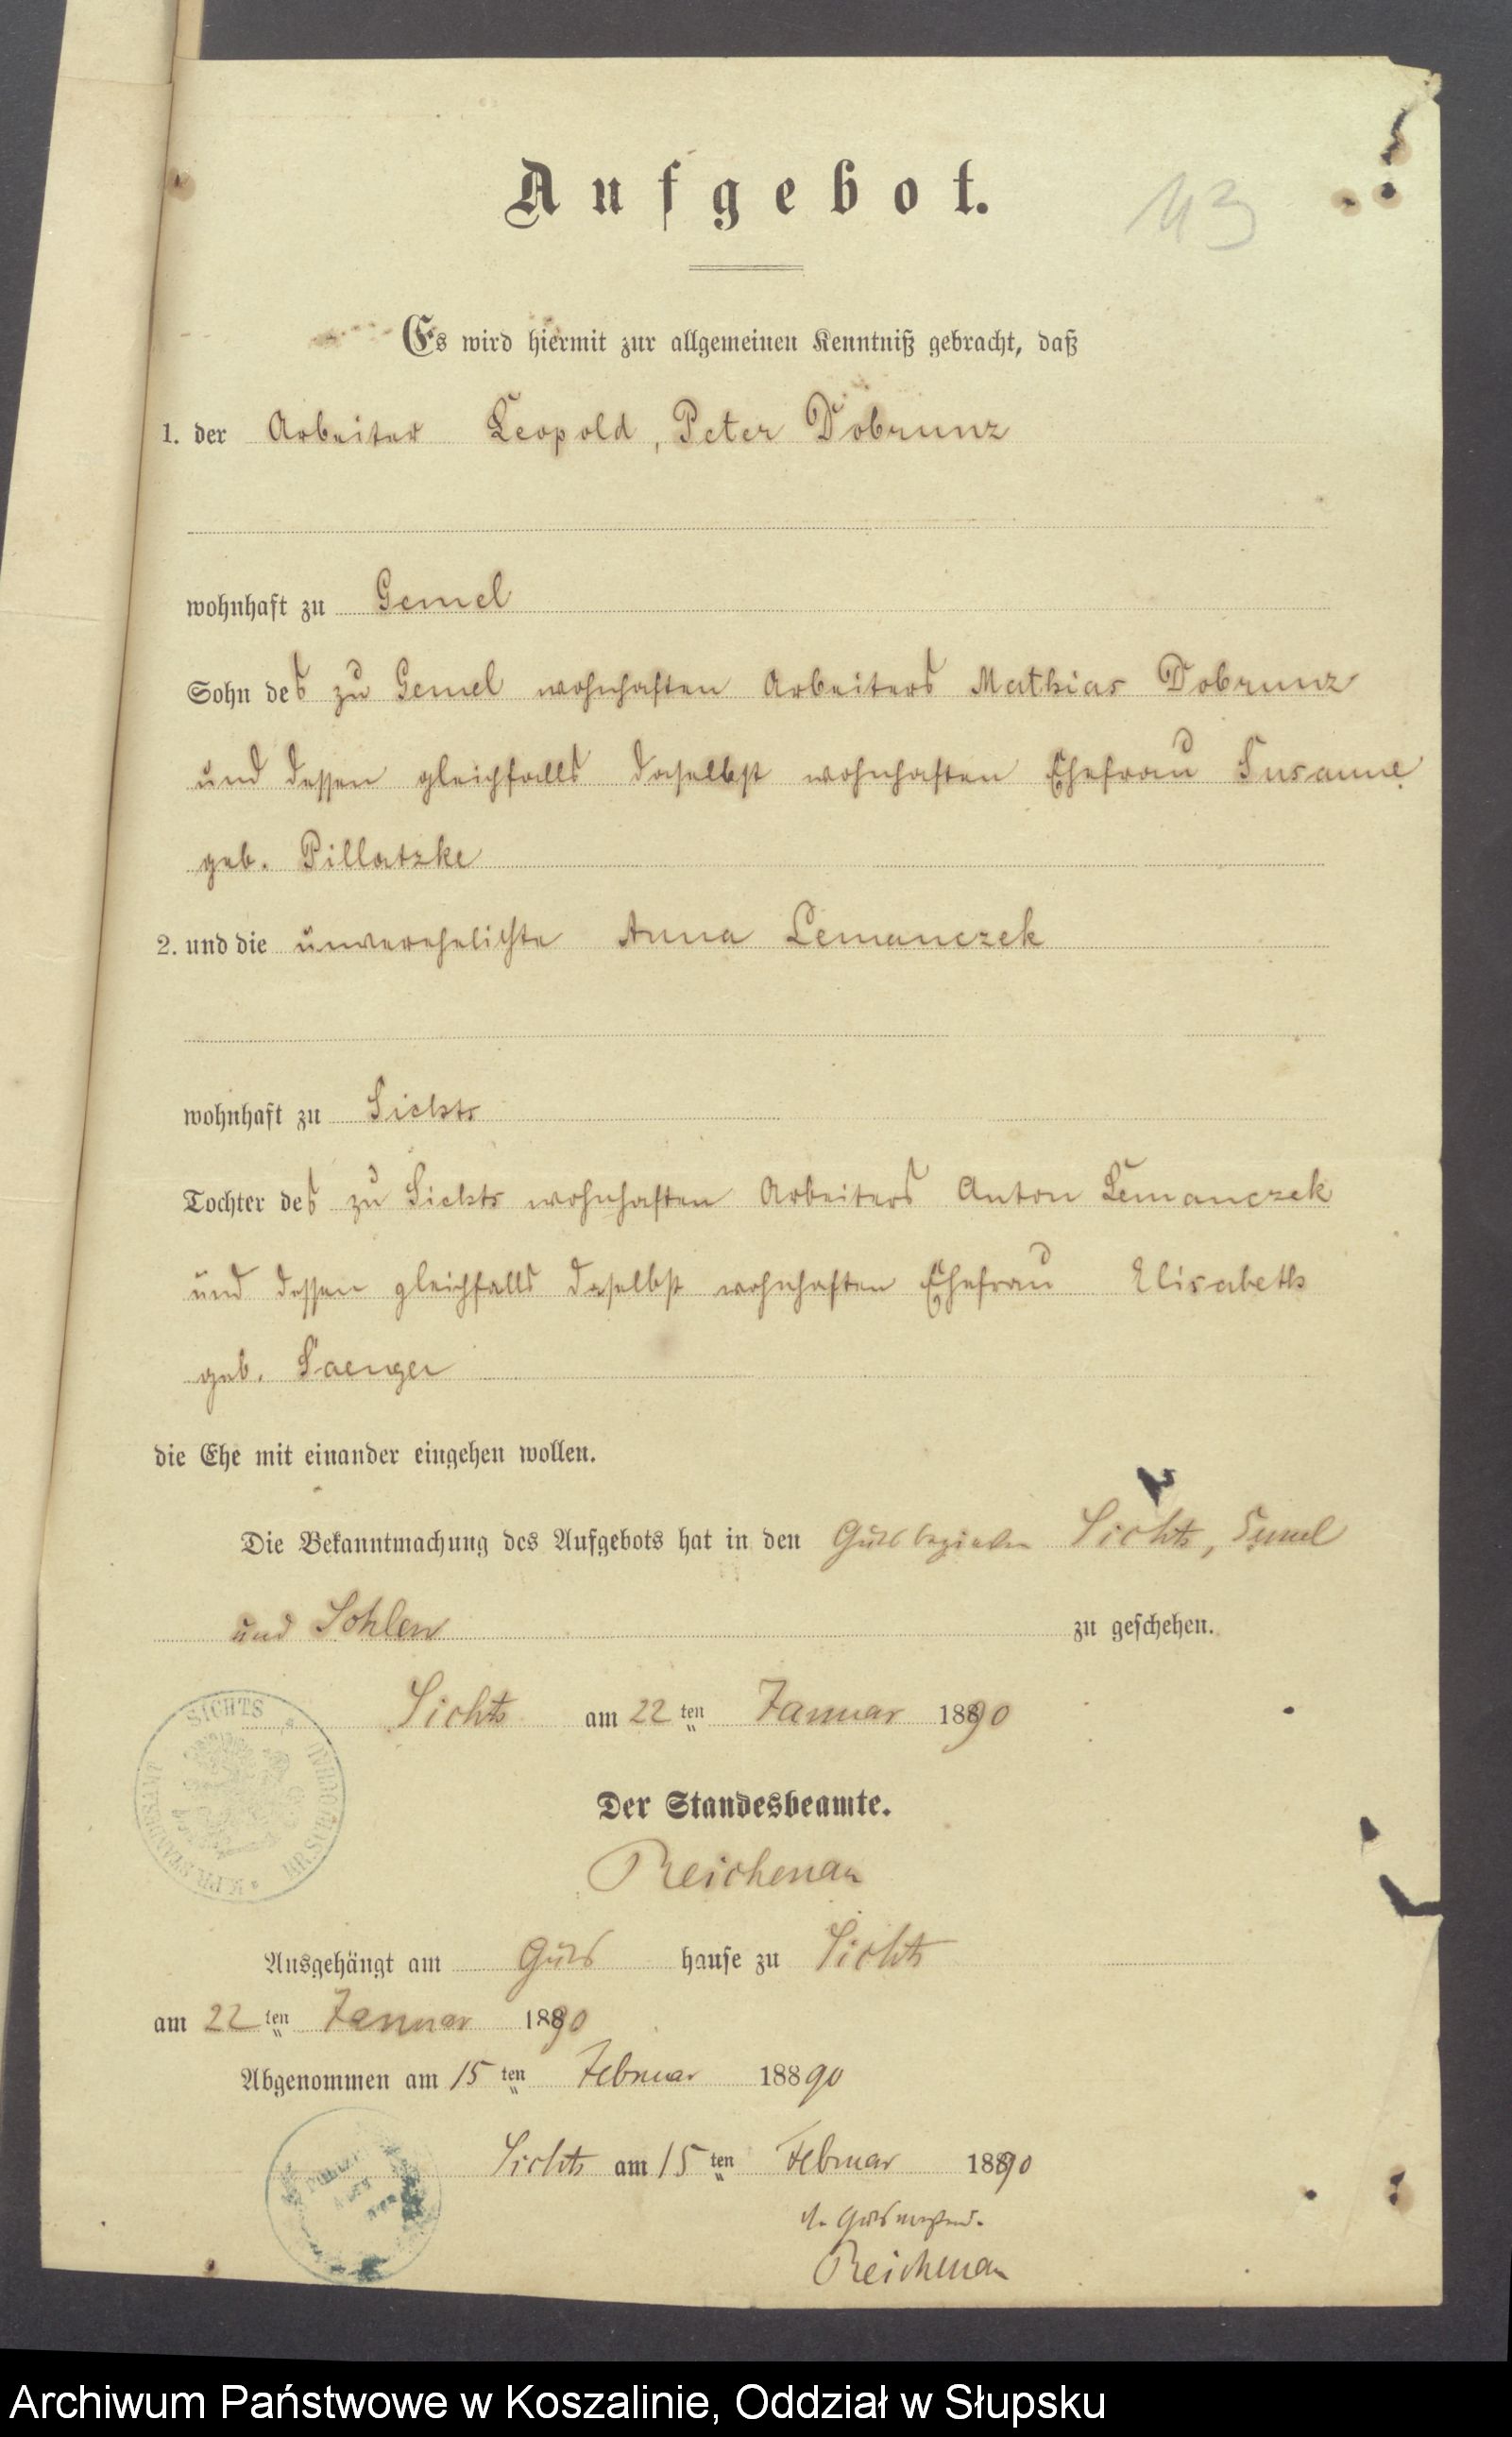 Aufgebot.
43
Es wird hiermit zur allgemeinen Kenntniß gebracht, daß
1. der Arbeiter Leopold, Peter Dobrunz
wohnhaft zu Gemel
Sohn des zu Gemel wohnhaften Arbeiters Mathias Dobrunz
und dessen gleichfalls daselbst wohnhaften Ehefrau Susanne
geb. Pillatzke
2. und die unverehelichte Anna Lemanczek
wohnhaft zu Sichts
Tochter des zu Sichts wohnhaften Arbeiters Anton Lemanczek
und dessen gleichfalls daselbst wohnhaften Ehefrau Elisabeth
geb. Saenger
die Ehe mit einander eingehen wollen.
Die Bekanntmachung des Aufgebots hat in den Gutsbezirken Sichts, Gemel
und Sohlen zu geschehen.
SICHTS
Sichts am 22 ten Januar 1890
Der Standesbeamte.
Reichenau
Ausgehängt am Guts hause zu Sichts
am 22 ten Januar 1890
Abgenommen am 15 ten Februar 18890
Sichts am 15 ten Februar 1890
Reichenau
Archiwum Państwowe w Koszalinie, Oddział w Słupsku